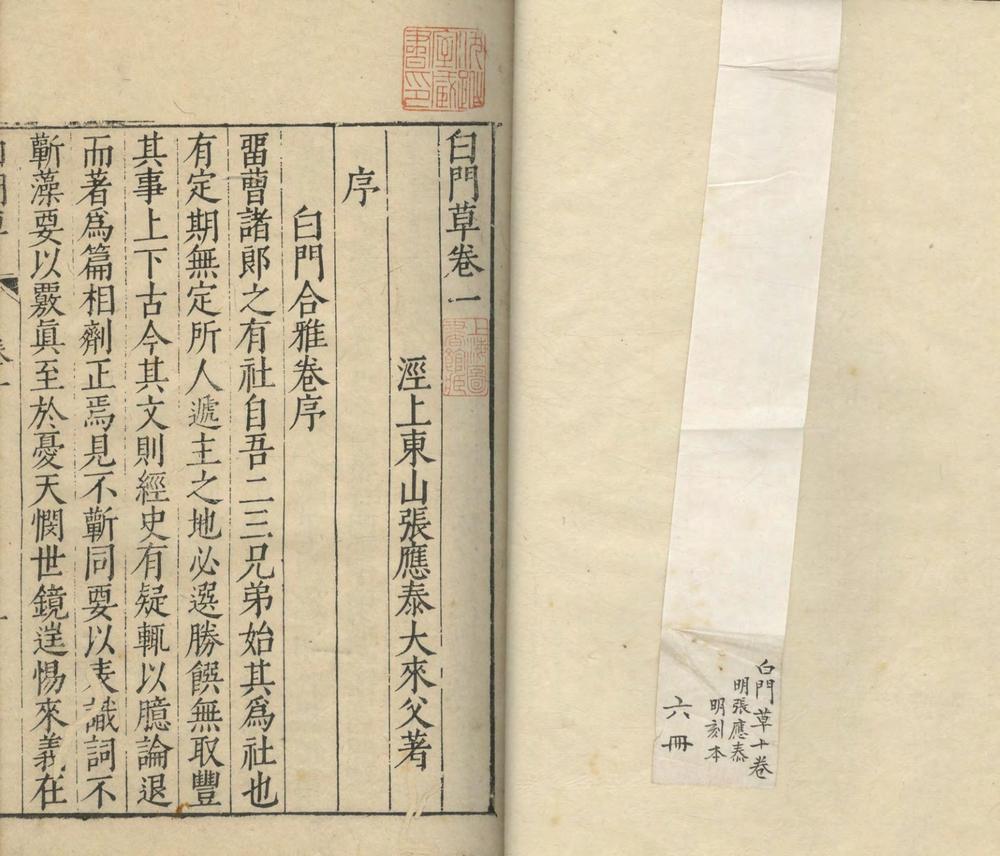 白門草十卷
明張應泰
明刻本
六冊
白門草卷一
上海圖書館藏
涇上東山張應泰大來父著
序
白門合雅卷序
畱曹諸郎之有社自吾二三兄弟始其爲社也
有定期無定所人遞主之地必選勝饌無取豐
其事上下古今其文則經史有疑輒以臆論退
而著爲篇相劑正焉見不蘄同要以表識詞不
蘄藻要以覈眞至於憂天憫世鏡逞惕來義在